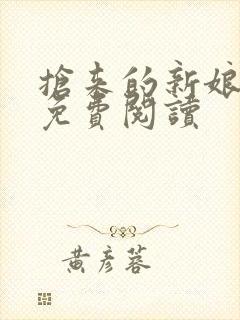 搶來的新娘
免費閱讀
黃彥蓉